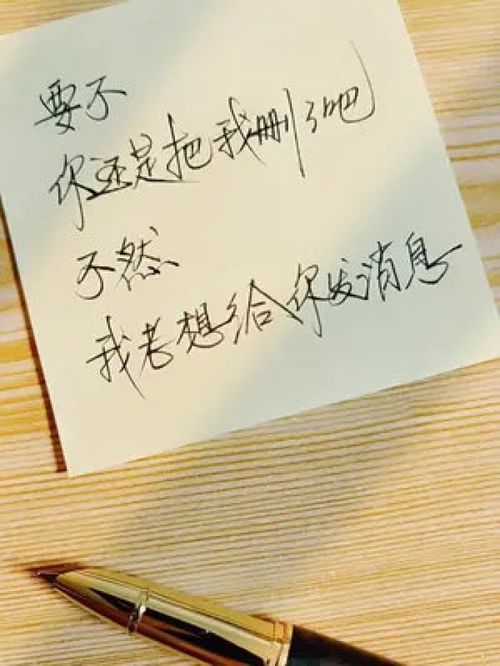 要不
你还是把我删了吧
不然
我老想给你发消息